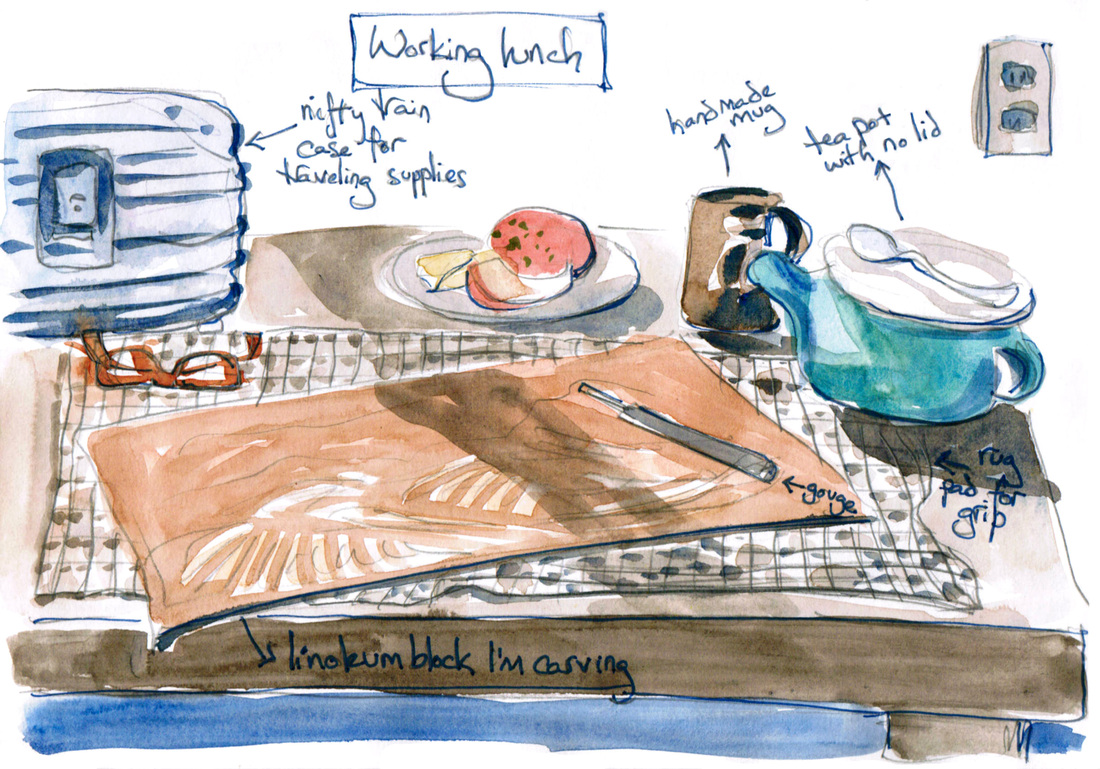 Working lunch
nifty train
case for
traveling supplies
handmade
mug
teapot
with no lid
rug
pad for
grip
gouge
linoleum block I'm carving